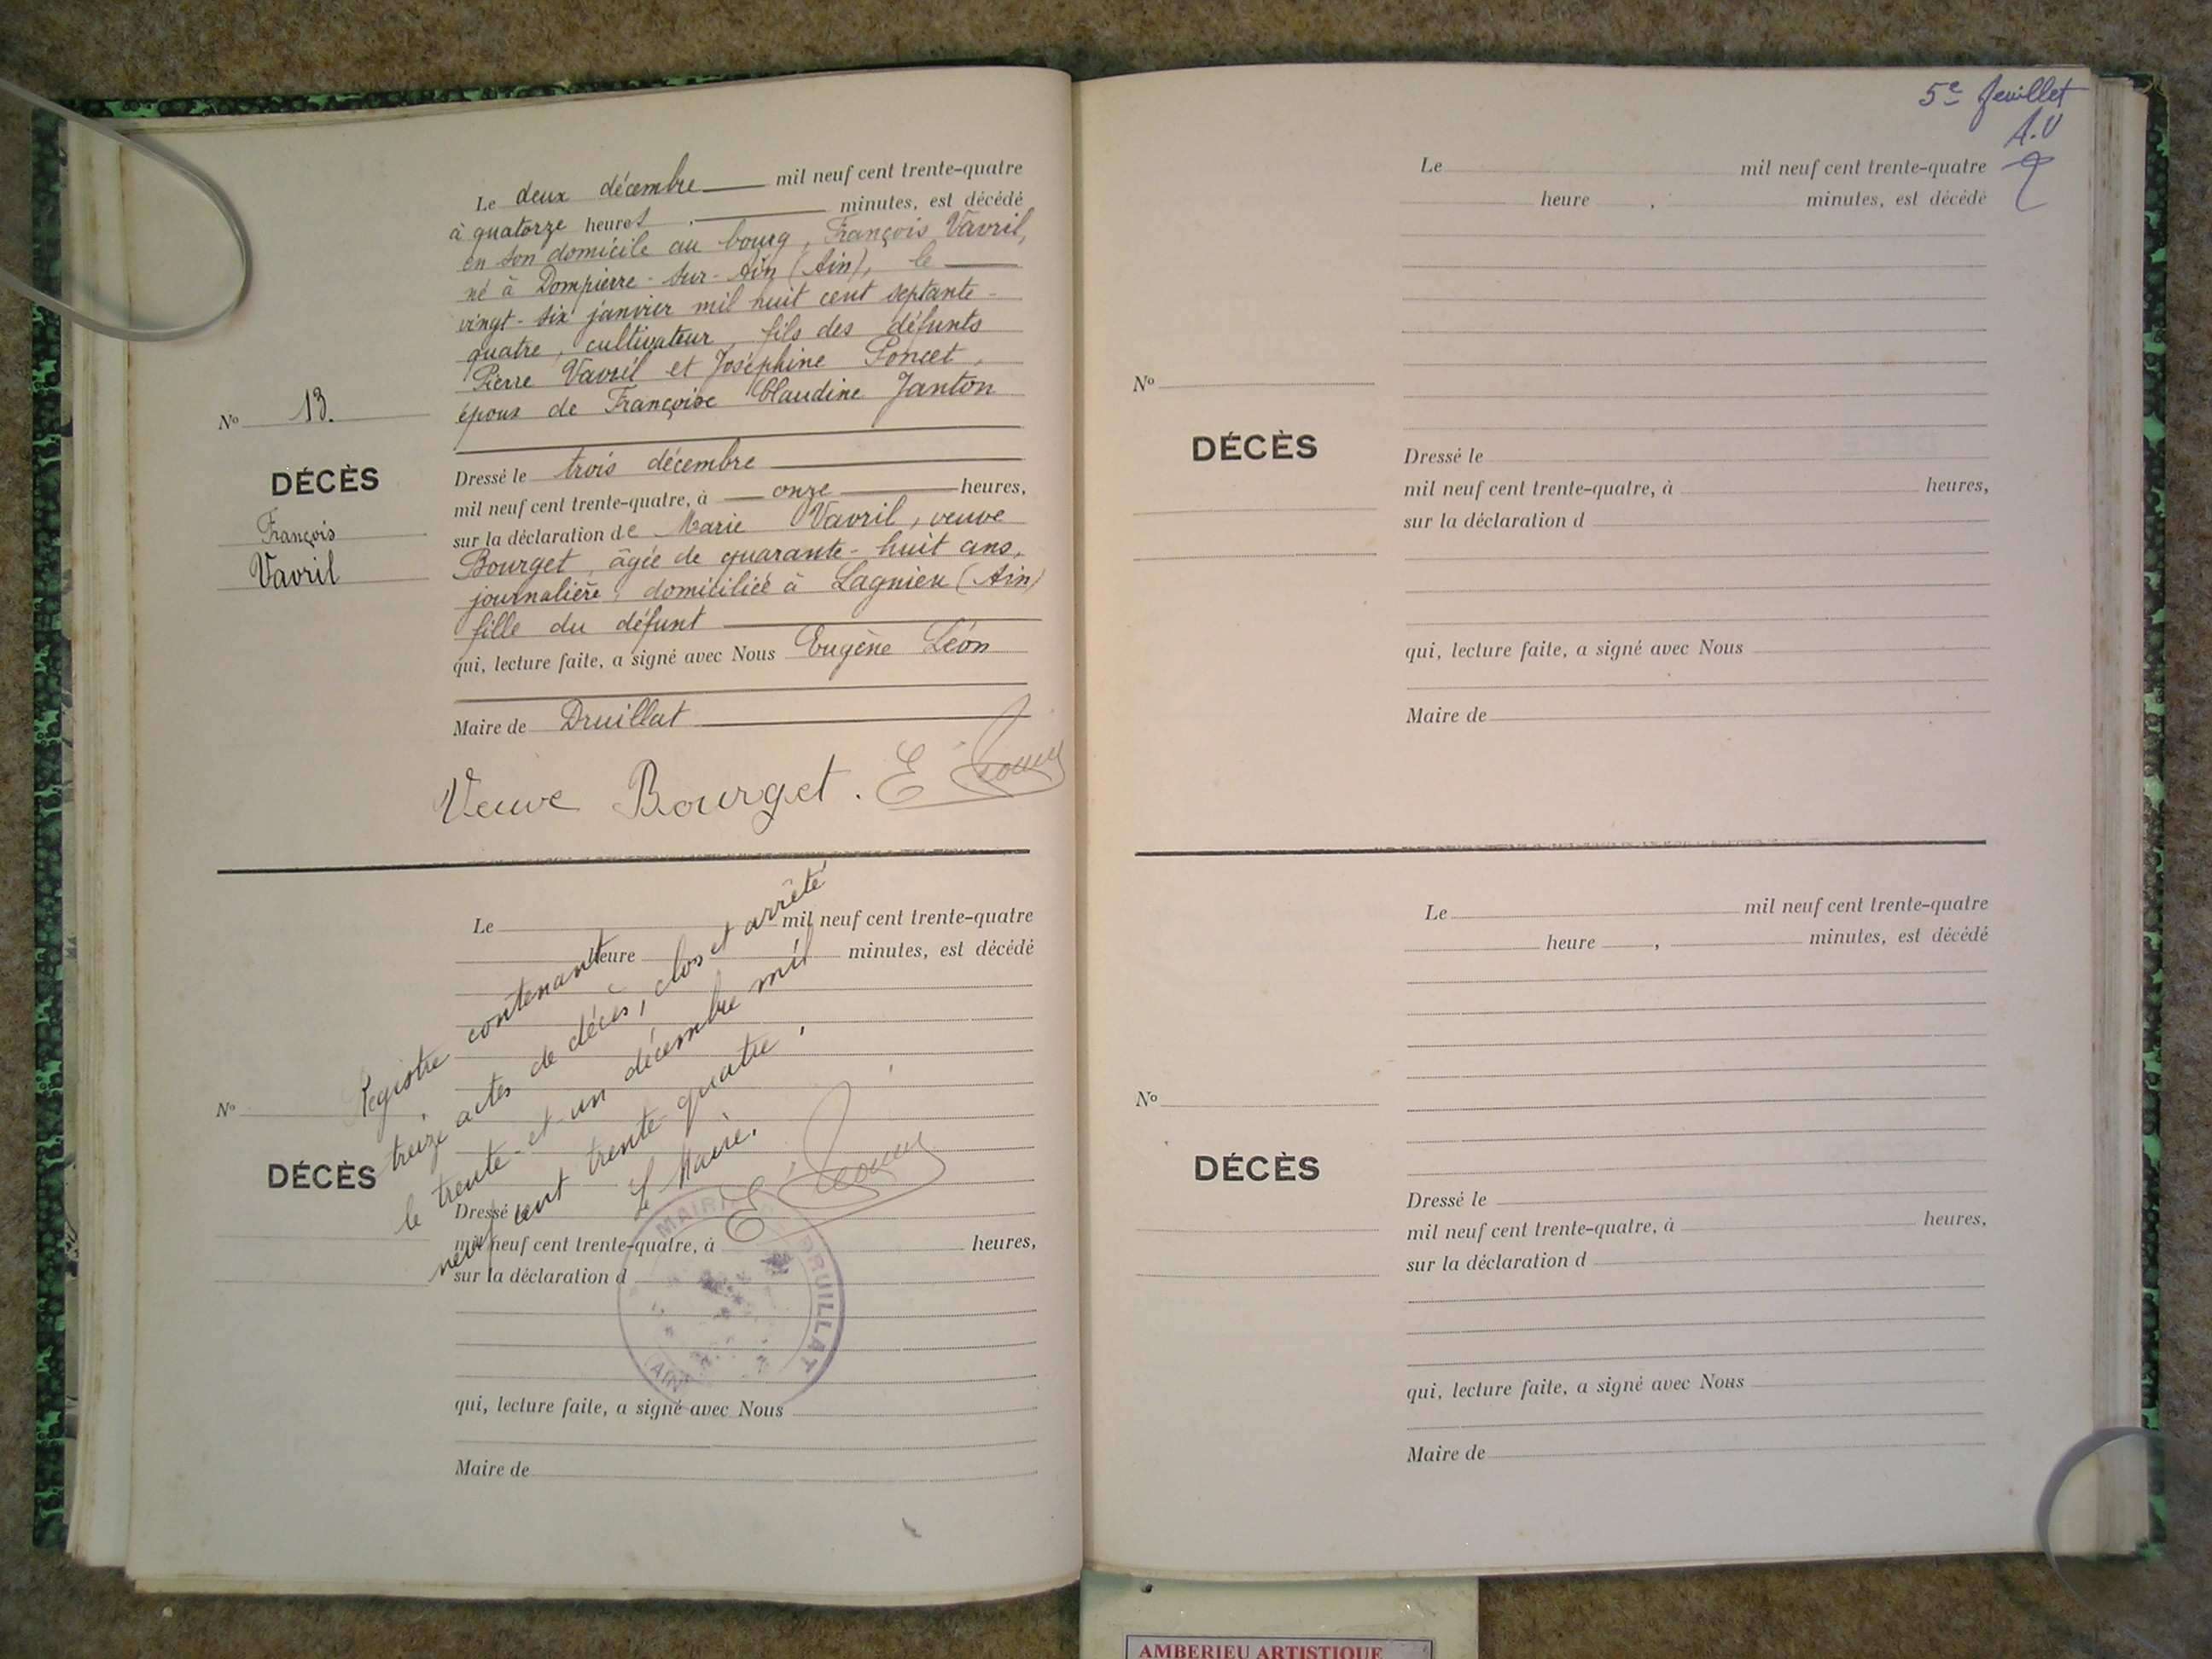 Le deux décembre mil neuf cent trente-quatre
à quatorze heures , minutes, est décédé
en son domicile au bourg, François Vavril,
né à Dompierre-sur-Ain (Ain), le
vingt-six janvier mil huit cent septante-
quatre, cultivateur, fils des défunts
Pierre Vavril et Joséphine Poncet,
époux de Françoise Claudine Janton
No 13.
DÉCÈS
François
Vavril
Dressé le trois décembre
mil neuf cent trente-quatre, à onze heures,
sur la déclaration de Marie Vavril, veuve
Bourget, âgée de quarante-huit ans,
journalière, domiciliée à Lagnieu (Ain)
fille du défunt
qui, lecture faite, a signé avec Nous Eugène Léon
Maire de Druillat
Veuve Bourget. E
Le mil neuf cent trente-quatre
heure minutes, est décédé
Registre contenant
treize actes de décès, clos et arrêté
le trente-et-un décembre mil
neuf cent trente quatre.
Le Maire.
E
No
DÉCÈS
Dressé le
mil neuf cent trente-quatre, à heures,
sur la déclaration d
MAIRIE DRUILLAT
AIN
qui, lecture faite, a signé avec Nous
Maire de
5e feuillet
A.V
Le mil neuf cent trente-quatre
heure , minutes, est décédé
No
DÉCÈS
Dressé le
mil neuf cent trente-quatre, à heures,
sur la déclaration d
qui, lecture faite, a signé avec Nous
Maire de
Le mil neuf cent trente-quatre
heure , minutes, est décédé
No
DÉCÈS
Dressé le
mil neuf cent trente-quatre, à heures,
sur la déclaration d
qui, lecture faite, a signé avec Nous
Maire de
AMBERIEU ARTISTIQUE